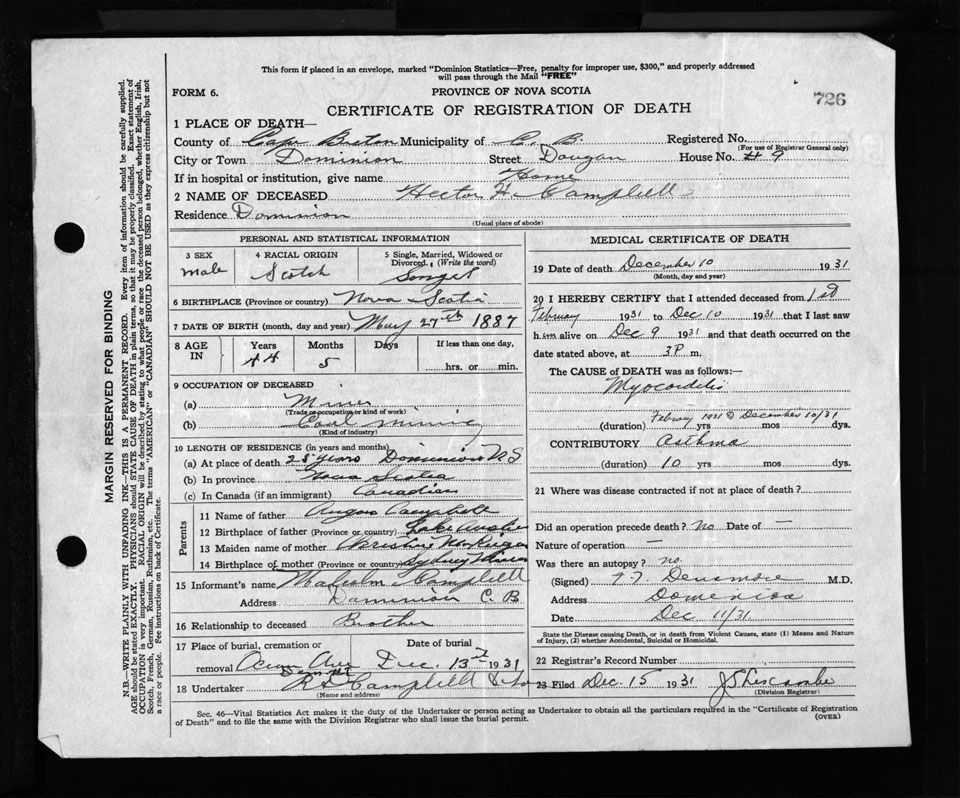 This form if placed in an envelope, marked "Dominion Statistics—Free, penalty for improper use, $300," and properly addressed
will pass through the Mail "FREE"
FORM 6.
PROVINCE OF NOVA SCOTIA
726
CERTIFICATE OF REGISTRATION OF DEATH
1 PLACE OF DEATH—
County of Cape Breton Municipality of C. B. Registered No.
(For use of Registrar General only)
City or Town Dominion Street Dougan House No. # 9
If in hospital or institution, give name Home
2 NAME OF DECEASED Hector H. Campbell
Residence Dominion
(Usual place of abode)
PERSONAL AND STATISTICAL INFORMATION
3 SEX 4 RACIAL ORIGIN 5 Single, Married, Widowed or
Divorced. (Write the word)
male Scotch
6 BIRTHPLACE (Province or country) Nova Scotia
7 DATE OF BIRTH (month, day and year) May 27th 1887
8 AGE IN Years Months Days If less than one day,
44 5 hrs. or min.
9 OCCUPATION OF DECEASED
(a) Miner
(Trade or occupation or kind of work)
(b) Coal mining
(Kind of industry)
10 LENGTH OF RESIDENCE (in years and months)
(a) At place of death 25 years Dominion N S
(b) In province Nova Scotia
(c) In Canada (if an immigrant) Canadian
Parents
11 Name of father Angus Campbell
12 Birthplace of father (Province or country) Lake Ainslie
13 Maiden name of mother
14 Birthplace of mother (Province or country) Sydney Mines
15 Informant's name Malcolm Campbell
Address Dominion C. B
16 Relationship to deceased Brother
17 Place of burial, cremation or Date of burial
removal Dec. 13 1931
18 Undertaker Campbell
(Name and address)
MEDICAL CERTIFICATE OF DEATH
19 Date of death December 10 1931
(Month, day and year)
20 I HEREBY CERTIFY that I attended deceased from 1st
February 1931 to Dec 10 1931 that I last saw
h im alive on Dec 9 1931 and that death occurred on
date stated above, at 3 P m.
The CAUSE of DEATH was as follows:—
Myocarditis
February 1931 December 10/31
(duration) yrs mos dys.
CONTRIBUTORY asthma
(duration) 10 yrs mos dys.
21 Where was disease contracted if not at place of death?
Did an operation precede death? no Date of —
Nature of operation —
Was there an autopsy? no
(Signed) Densmore M.D.
Address Dominion
Date Dec 11/31
State the Disease causing Death, or in death from Violent Causes, state (1) Means and
Nature of Injury, (2) whether Accidental, Suicidal or Homicidal.
22 Registrar's Record Number
23 Filed Dec. 15 1931
(Division Registrar)
Sec. 46—Vital Statistics Act makes it the duty of the Undertaker or person acting as Undertaker to obtain all the particulars required in the "Certificate of Registration
of Death" and to file the same with the Division Registrar who shall issue the burial permit.
(OVER)
MARGIN RESERVED FOR BINDING
N.B.—WRITE PLAINLY WITH UNFADING INK—THIS IS A PERMANENT RECORD. Every item of information should be carefully supplied.
AGE should be stated EXACTLY. PHYSICIANS should STATE CAUSE OF DEATH in plain terms, so that it may be properly classified. Exact statement of
OCCUPATION is very important. RACIAL ORIGIN will be described by stating to what people or race deceased person belonged, whether English, Irish,
Scotch, French, German, Russian, Ruthenian, etc. The terms "AMERICAN" or "CANADIAN" SHOULD NOT BE USED as they express citizenship but not
a race or people. See instructions on back of Certificate.